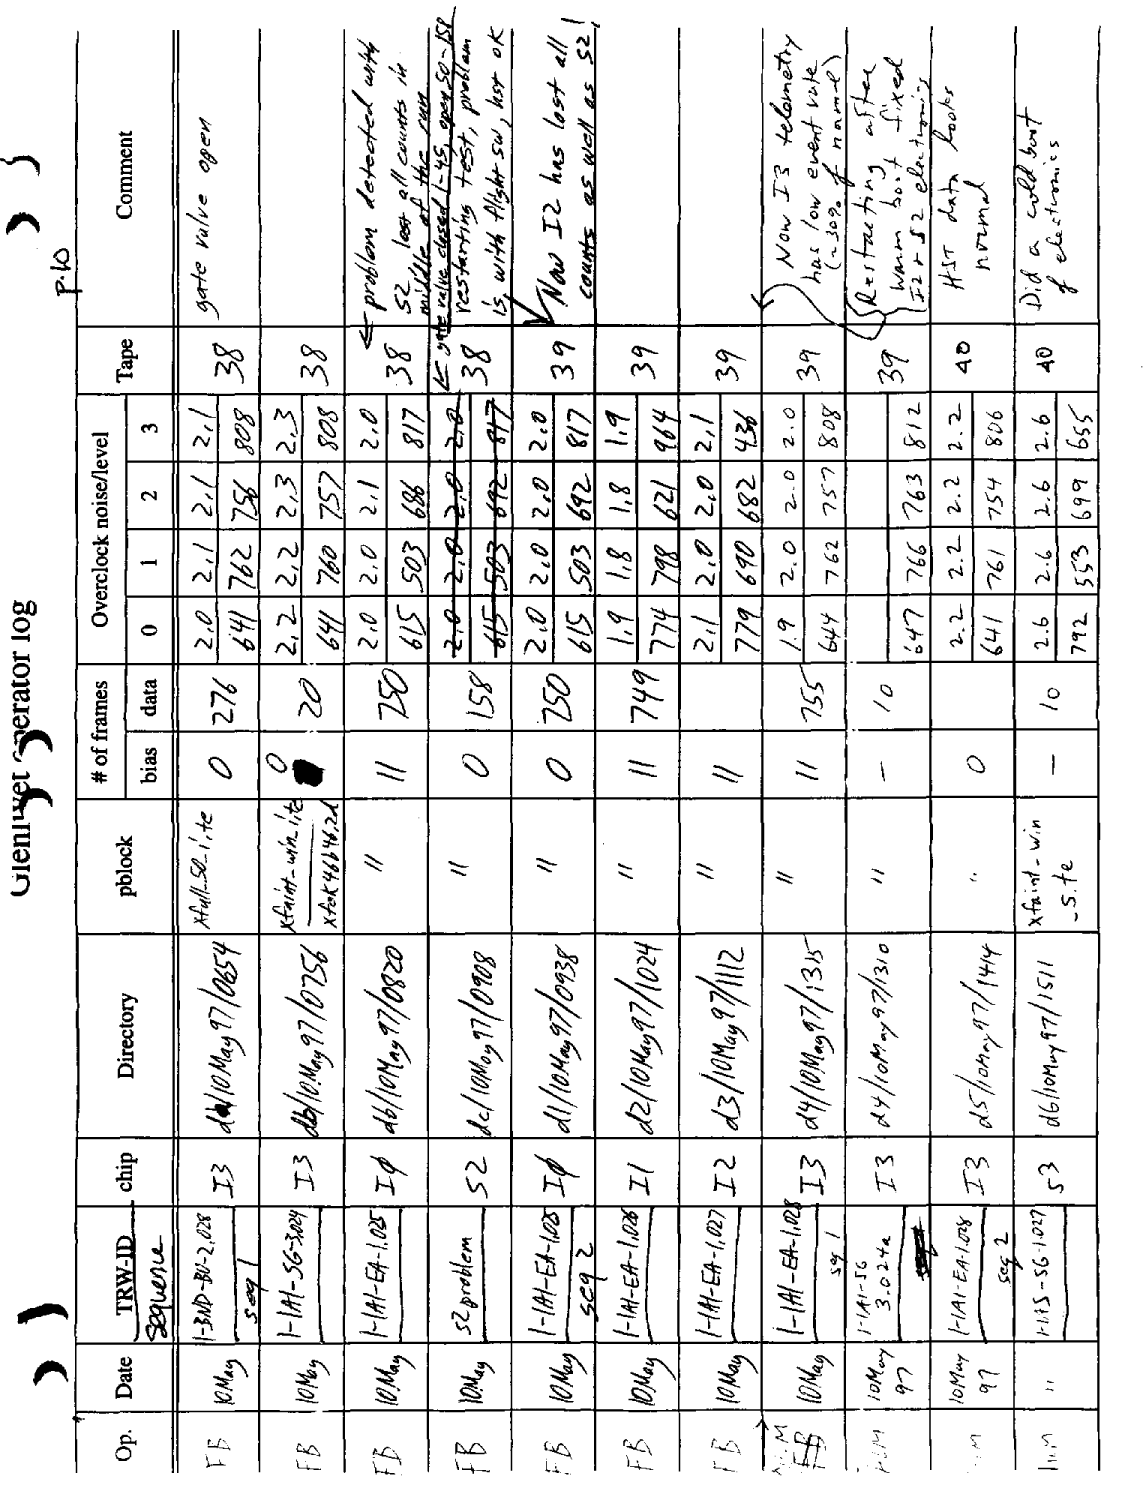 Glenlivet operator log
p.10
Op. Date TRW-ID chip Directory pblock # of frames Overclock noise/level Tape Comment
sequence bias data 0 1 2 3
FB 10May 1-3ND-BU-2.028 I3 da/10May97/0654 xfull-50-lite 0 276 2.0 2.1 2.1 2.1 38 gate valve open
seq 1 641 762 756 808
FB 10May 1-1A1-SG-3.024 I3 db/10May97/0756 xfaint-win-lite 0 20 2.2 2.2 2.3 2.3 38
641 760 757 808
FB 10May 1-1A1-EA-1.025 IØ db/10May97/0820 " 11 750 2.0 2.0 2.1 2.0 38 ← problem detected with
615 503 686 817 S2 lost all counts in
middle of the run
FB 10May S2 problem S2 dc/10May97/0908 " 0 158 2.0 2.0 2.0 2.0 38 ← gate valve closed 1-45, open 50-158
615 503 692 817 restarting test, problem
is with flight sw, hst ok
FB 10May 1-1A1-EA-1.025 IØ d1/10May97/0938 " 0 750 2.0 2.0 2.0 2.0 39 Now I2 has lost all
seq 2 615 503 692 817 counts as well as S2!
FB 10May 1-1A1-EA-1.026 I1 d2/10May97/1024 " 11 749 1.9 1.8 1.8 1.9 39
774 798 621 964
FB 10May 1-1A1-EA-1.027 I2 d3/10May97/1112 " 11 2.1 2.0 2.0 2.1 39
779 690 682 436
FB 10May 1-1A1-EA-1.028 I3 d4/10May97/1315 " 11 755 1.9 2.0 2.0 2.0 39 Now I3 telemetry
seq 1 644 762 757 808 has low event rate
(~30% of normal)
10May 1-1A1-SG I3 d4/10May97/1310 " — 10 39 Restarting after
97 3.024a 647 766 763 812 warm boot fixed
I2 + S2 electronics
10May 1-1A1-EA-1.028 I3 d5/10May97/1414 " 0 2.2 2.2 2.2 2.2 40 HST data looks
97 seq 2 641 761 754 806 normal
" 1-1A5-SG-1.027 S3 d6/10May97/1511 xfaint-win — 10 2.6 2.6 2.6 2.6 40 Did a cold boot
-s.te 792 553 699 655 of electronics